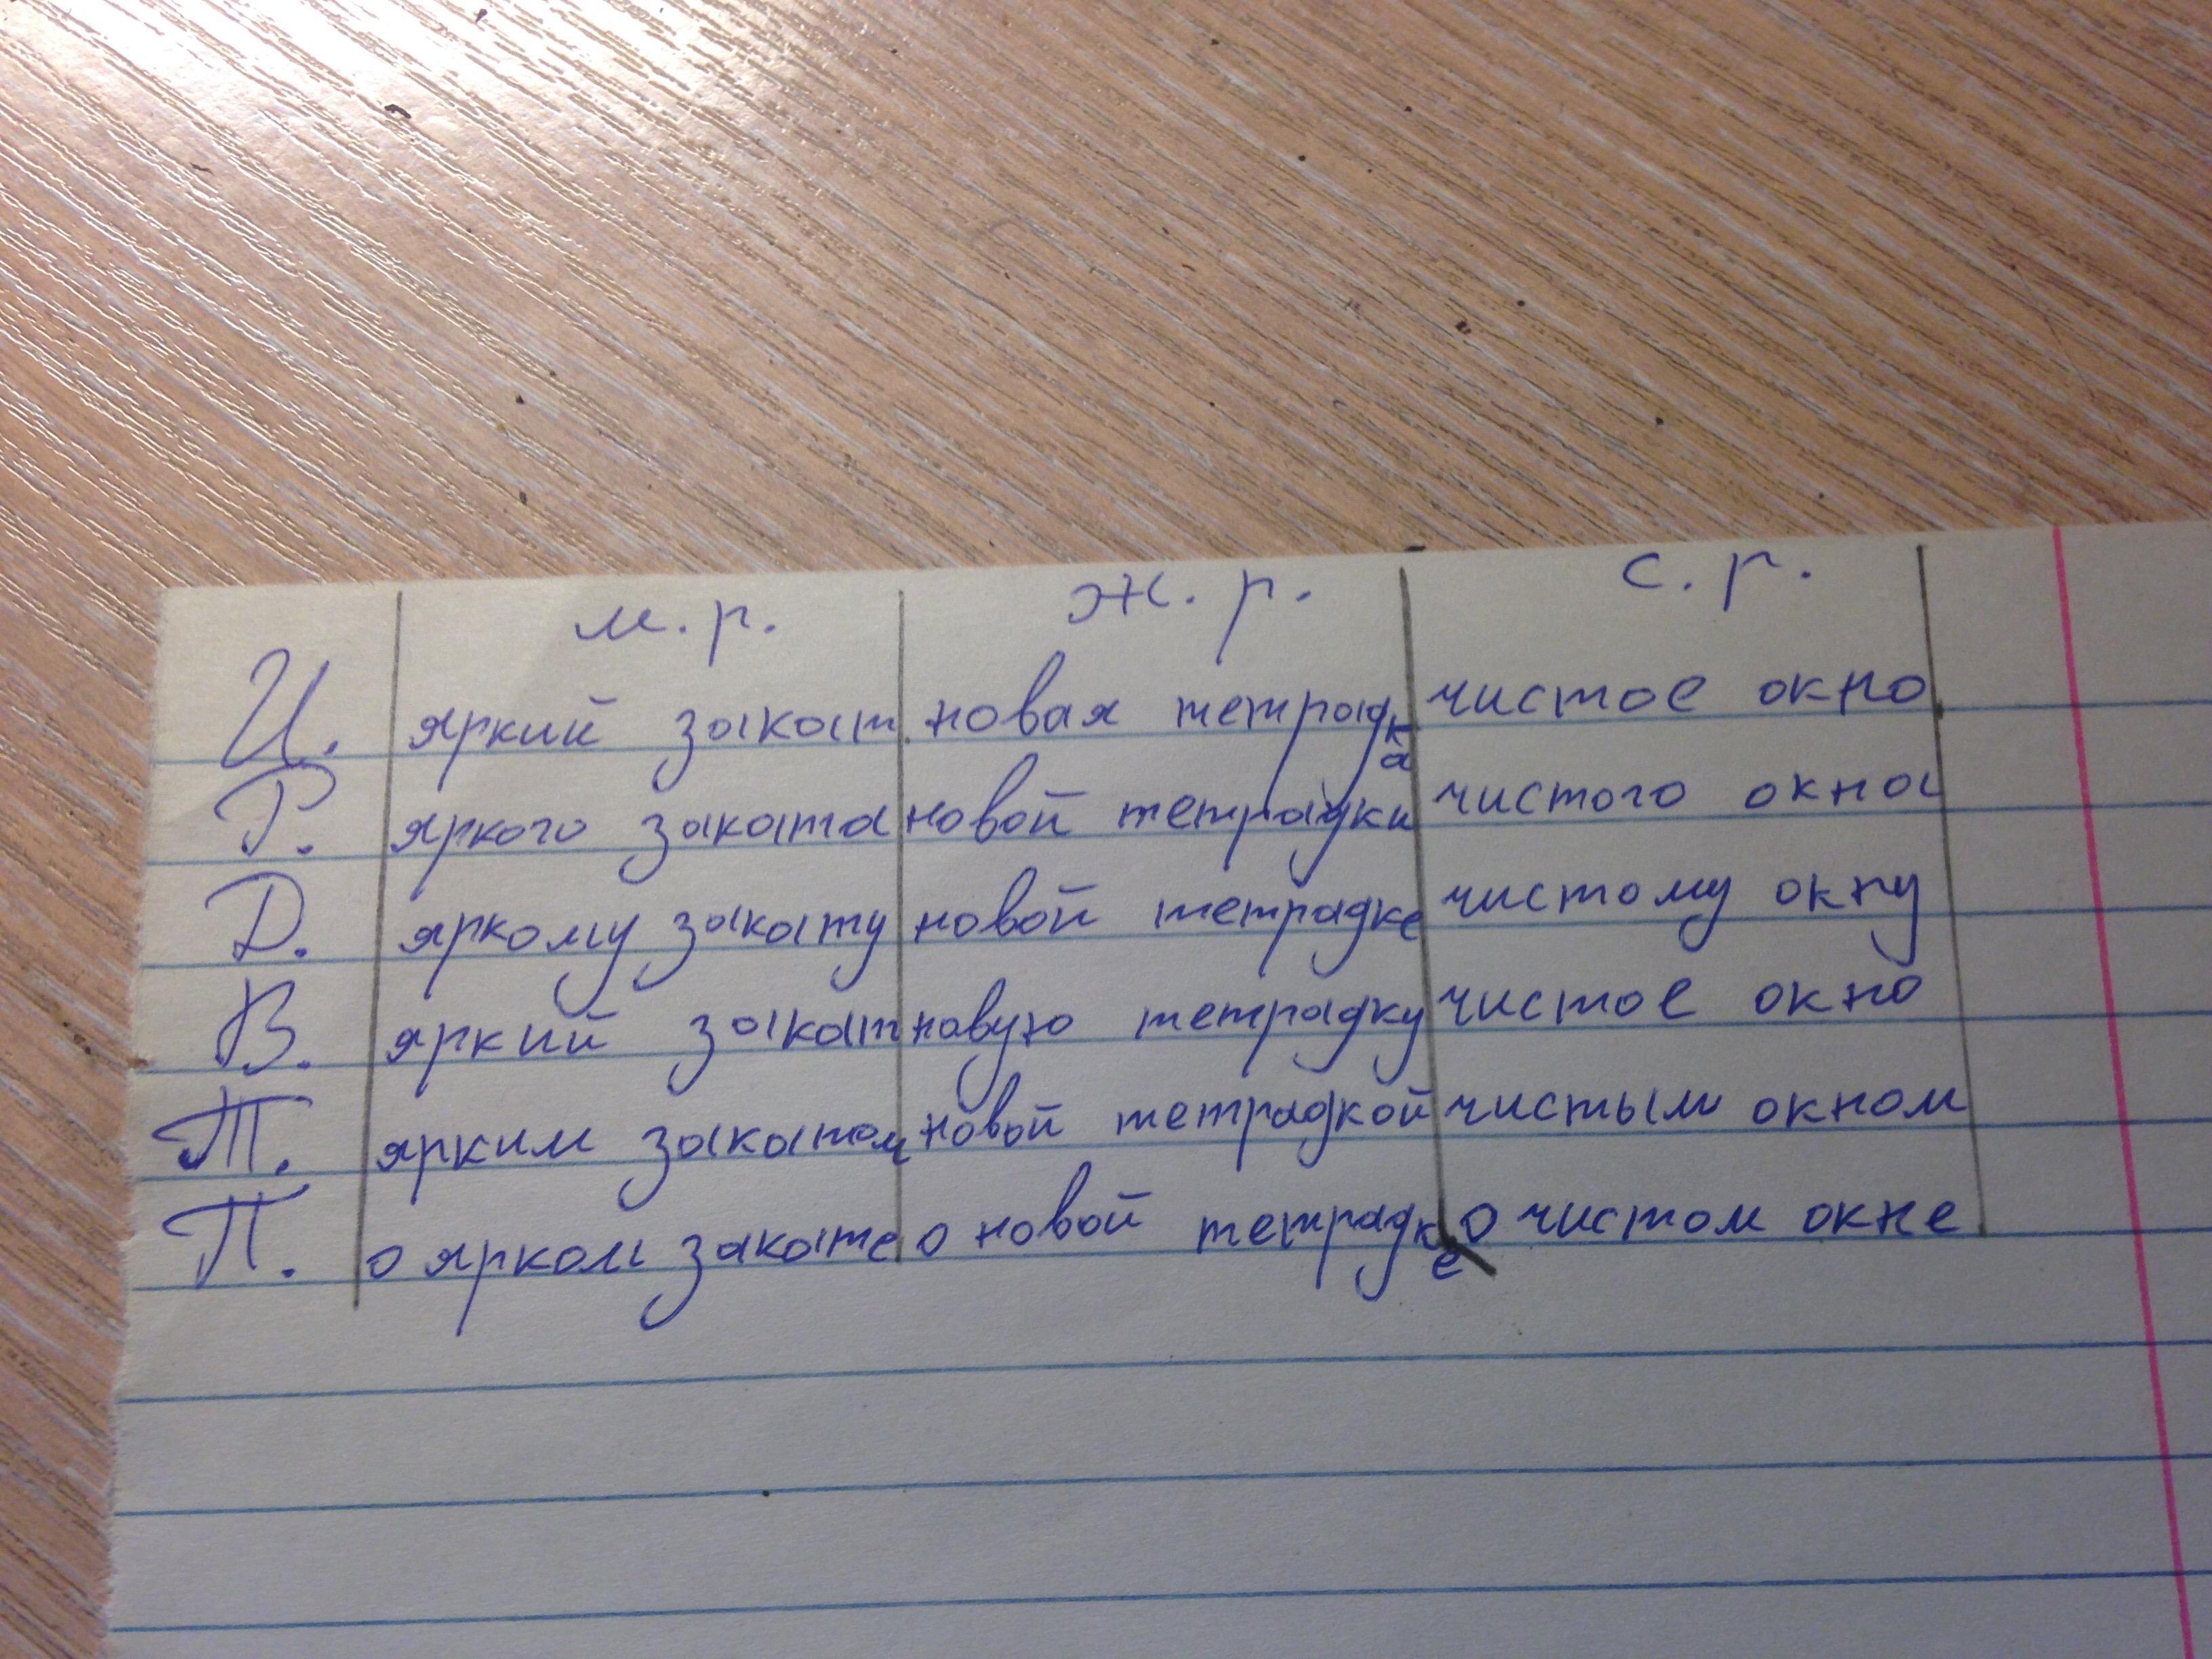 м. р. ж. р. с. р.
И. яркий закат новая тетрадка чистое окно
Р. яркого заката новой тетрадки чистого окна
Д. яркому закату новой тетрадке чистому окну
В. яркий закат новую тетрадку чистое окно
Т. ярким закатом новой тетрадкой чистым окном
П. о ярком закате о новой тетрадке о чистом окне